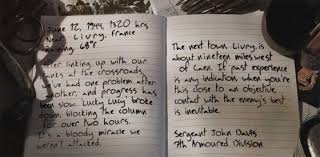 June 12, 1944, 1320 hrs
Near Livry, France
Raining, 68°F
After linking up with our
tanks at the crossroads,
we've had one problem after
another, and progress has
been slow. Lucky Lucy broke
down, blocking the column
for over two hours.
It's a bloody miracle we
weren't attacked.
The next town, Livry, is
about nineteen miles west
of Caen. If past experience
is any indication when you're
this close to an objective,
contact with the enemy's best
is inevitable.
Sergeant John Davis
7th Armoured Division